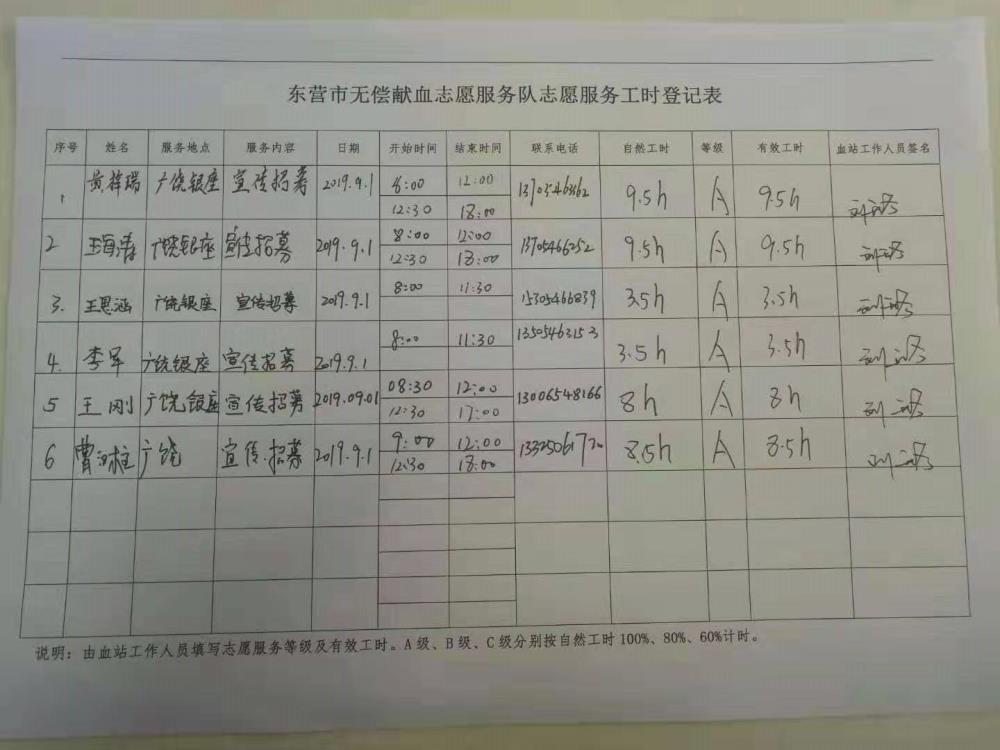 东营市无偿献血志愿服务队志愿服务工时登记表
序号 姓名 服务地点 服务内容 日期 开始时间 结束时间 联系电话 自然工时 等级 有效工时 血站工作人员签名
1 黄梓瑞 广饶银座 宣传招募 2019.9.1 8:00 12:00 9.5h A 9.5h
12:30 18:00
2 王海涛 广饶银座 宣传招募 2019.9.1 8:00 12:00 13705466252 9.5h A 9.5h
12:30 18:00
3. 王思涵 广饶银座 宣传招募 2019.9.1 8:00 11:30 15305466839 3.5h A 3.5h
4. 李军 广饶银座 宣传招募 2019.9.1 8:00 11:30 13505463153 3.5h A 3.5h
5 王刚 广饶银座 宣传招募 2019.09.01 08:30 12:00 13006548166 8h A 8h
12:30 17:00
6 广饶 宣传.招募 2019.9.1 9:00 12:00 8.5h A 8.5h
12:30 18:00
说明：由血站工作人员填写志愿服务等级及有效工时。A级、B级、C级分别按自然工时100%、80%、60%计时。